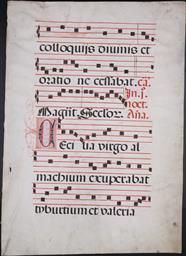 colloquijs diuinis et
oratio ne cessabat. ca.
In. j.
noct.
Magnit. Seclor. Ana.
Ceci lia virgo al
machium exuperabat
tyburtium et valeria